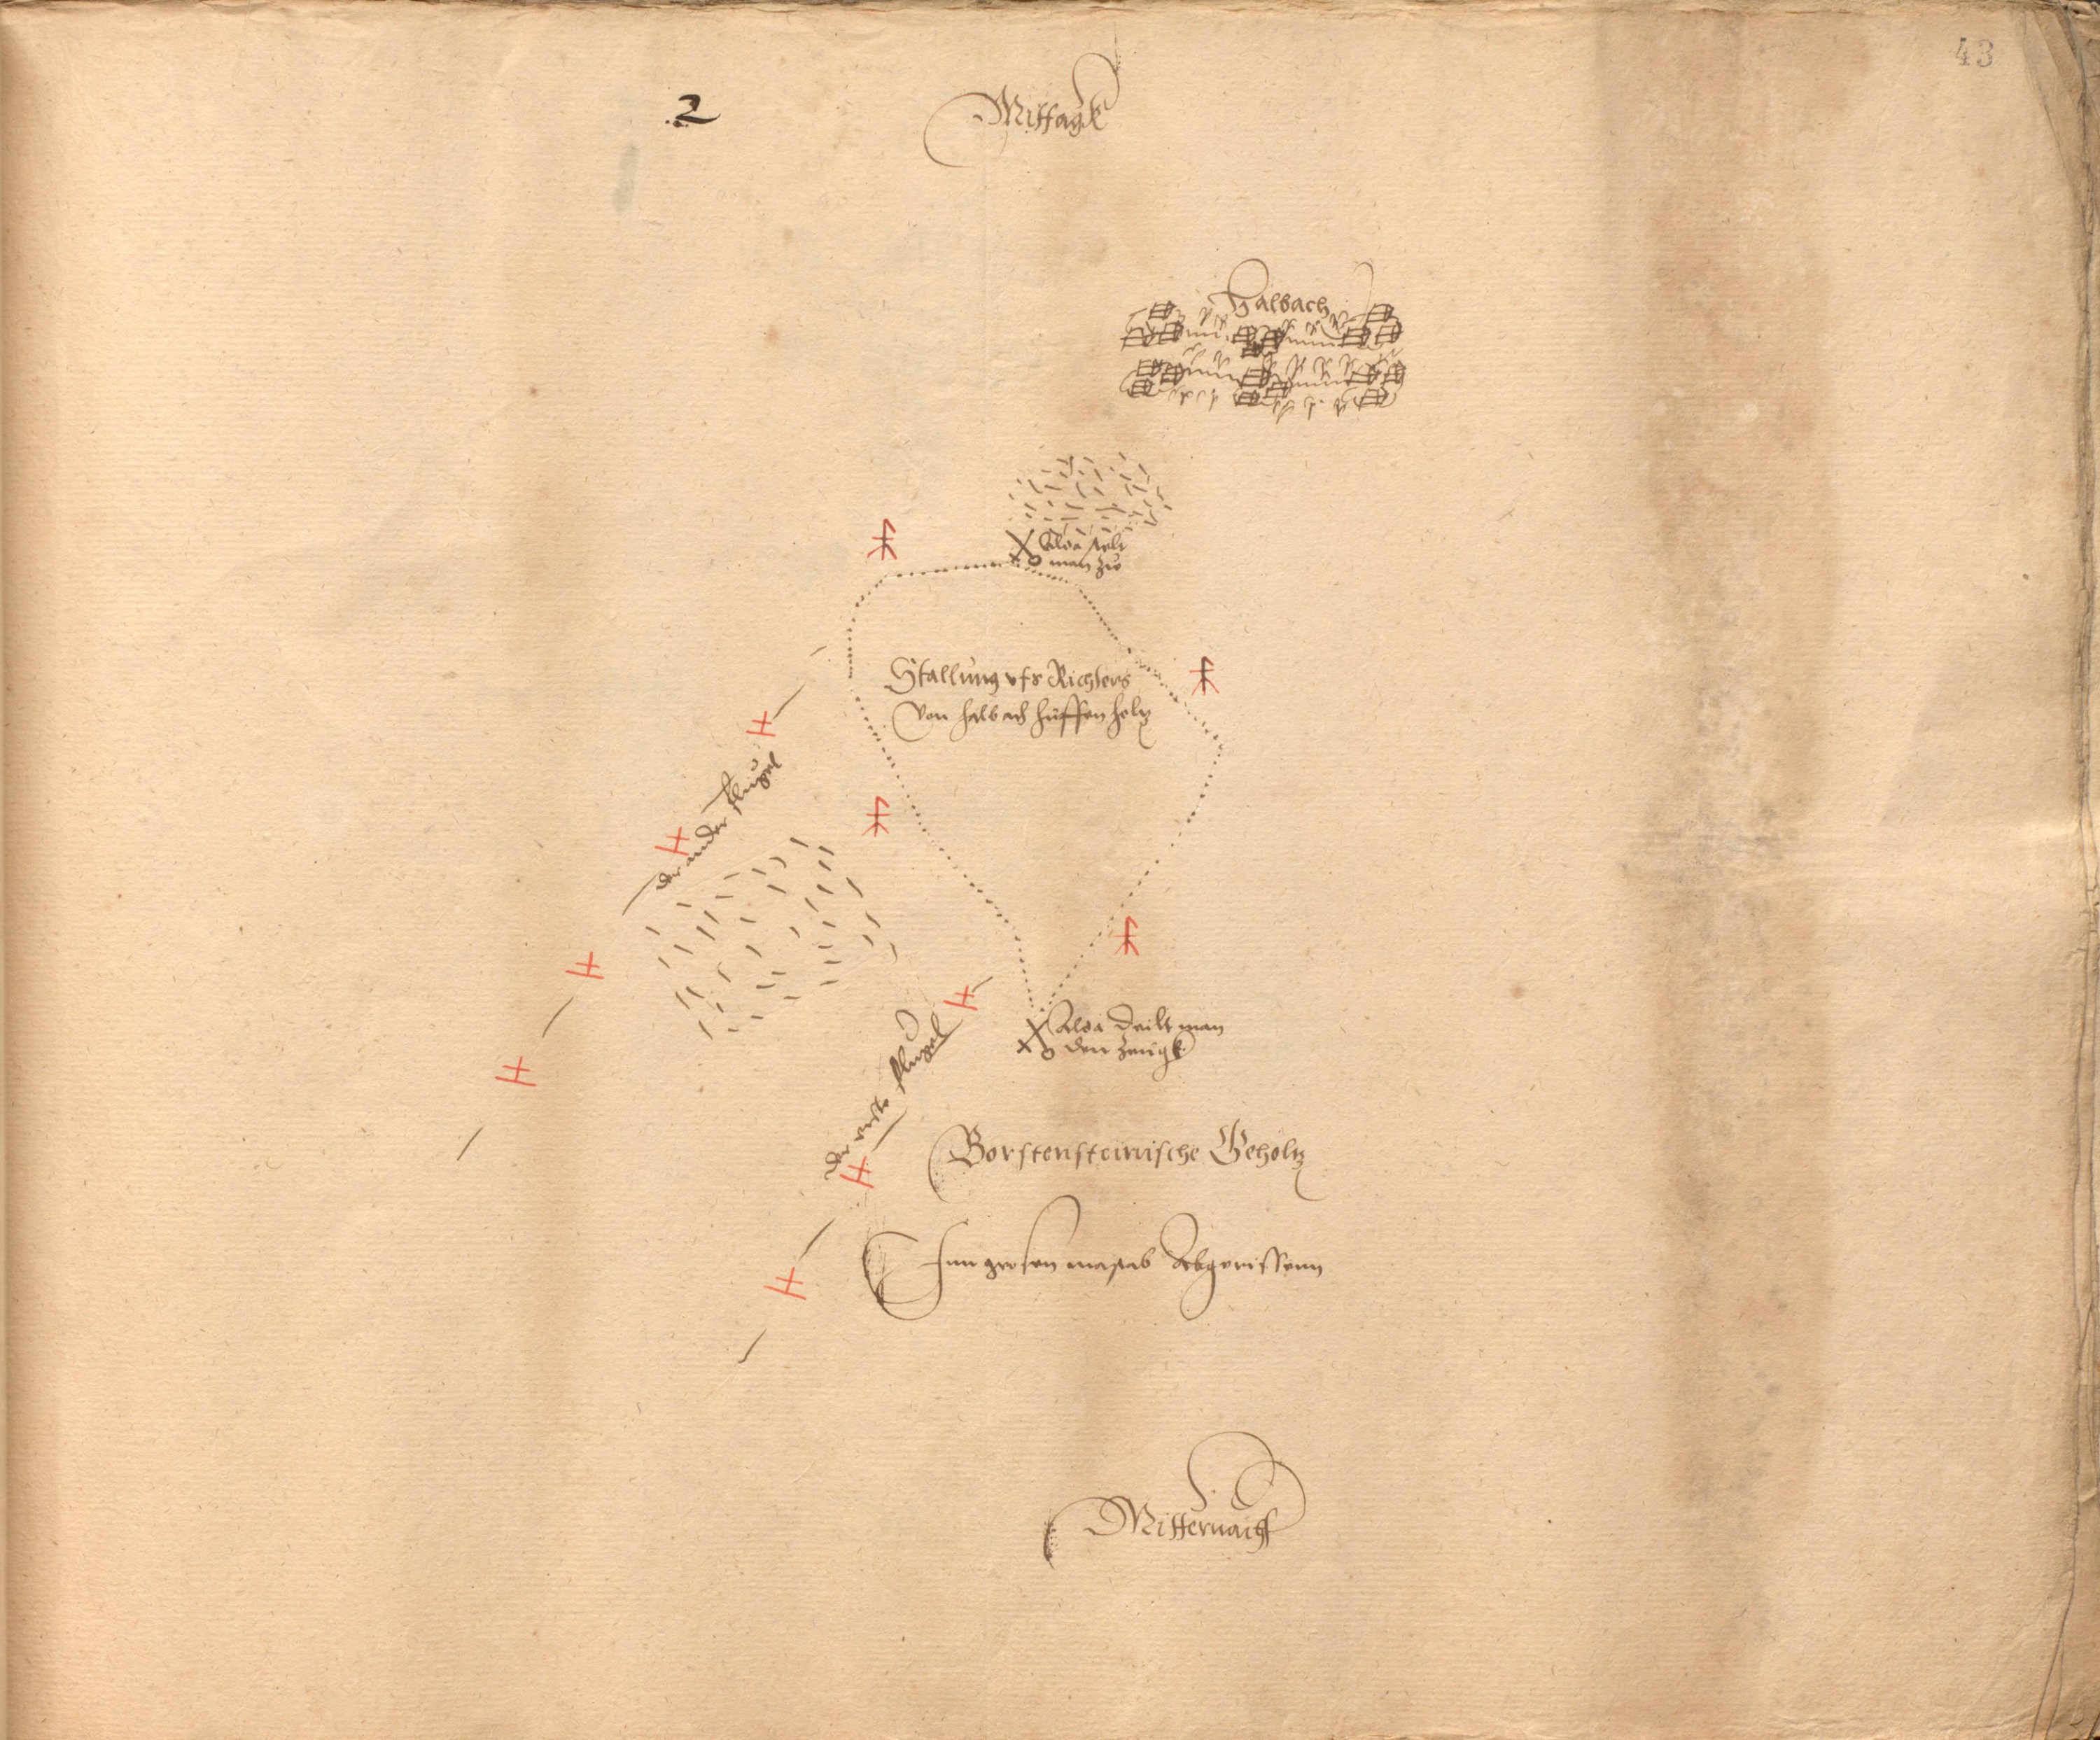 43
2
Mittagk
Halbach
Alda stelt
man zu
Stallung vfs Richters
Von halbach huffen holtz
der ander flugel
Alda Deilt man
den zeugk
der erste flugel
Borstensteinische Geholtz
Inn grosen masstab Abgerissenn
Mitternacht